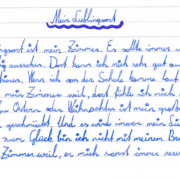 Mein Lieblingsort
ngsort ist mein Zimmer. Es sollte immer
aussehen. Dort kann ich mich sehr gut
Wenn ich von der Schule komme lauf
mein Zimmer weil, dort fühle ich mich
Ostern oder Weihnachten ist mein
geschmückt. Und es wird immer mein
zum Glück bin ich nicht mit meinem Br
Zimmer weil, er mich sonst immer